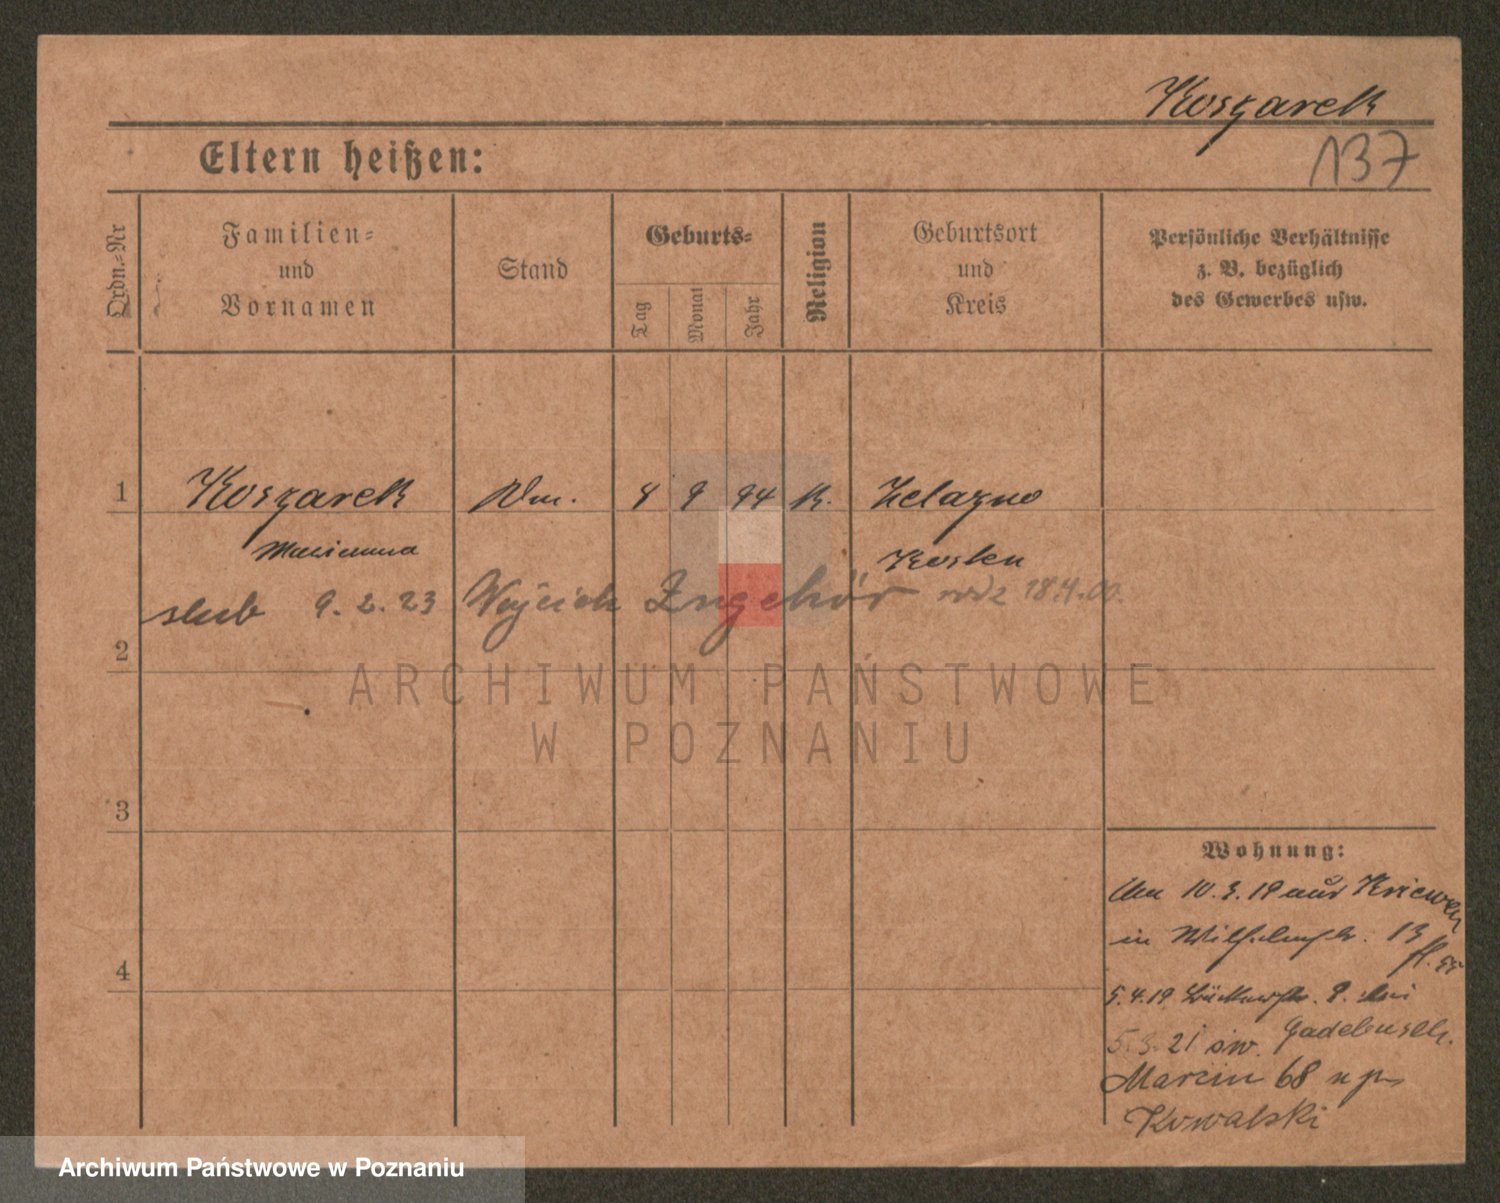 Koszarek
137
Eltern heißen:
Ordn.-Nr
Familien-
und
Vornamen
Stand
Geburts-
Tag
Monat
Jahr
Religion
Geburtsort
und
Kreis
Persönliche Verhältnisse
z. B. bezüglich
des Gewerbes usw.
1 Koszarek 4 9 94 K. Zelazno
Marianna Kosten
slub 9. 2. 23 Wojciech rodz 18.4.00.
2
ARCHIWUM PAŃSTWOWE
W POZNANIU
3
Wohnung:
10.3.19 aus Kriewen
in 13
4
5.4.19 bei
5.3.21 św. Gadebusch.
Marcin 68 u p
Kowalski
Archiwum Państwowe w Poznaniu